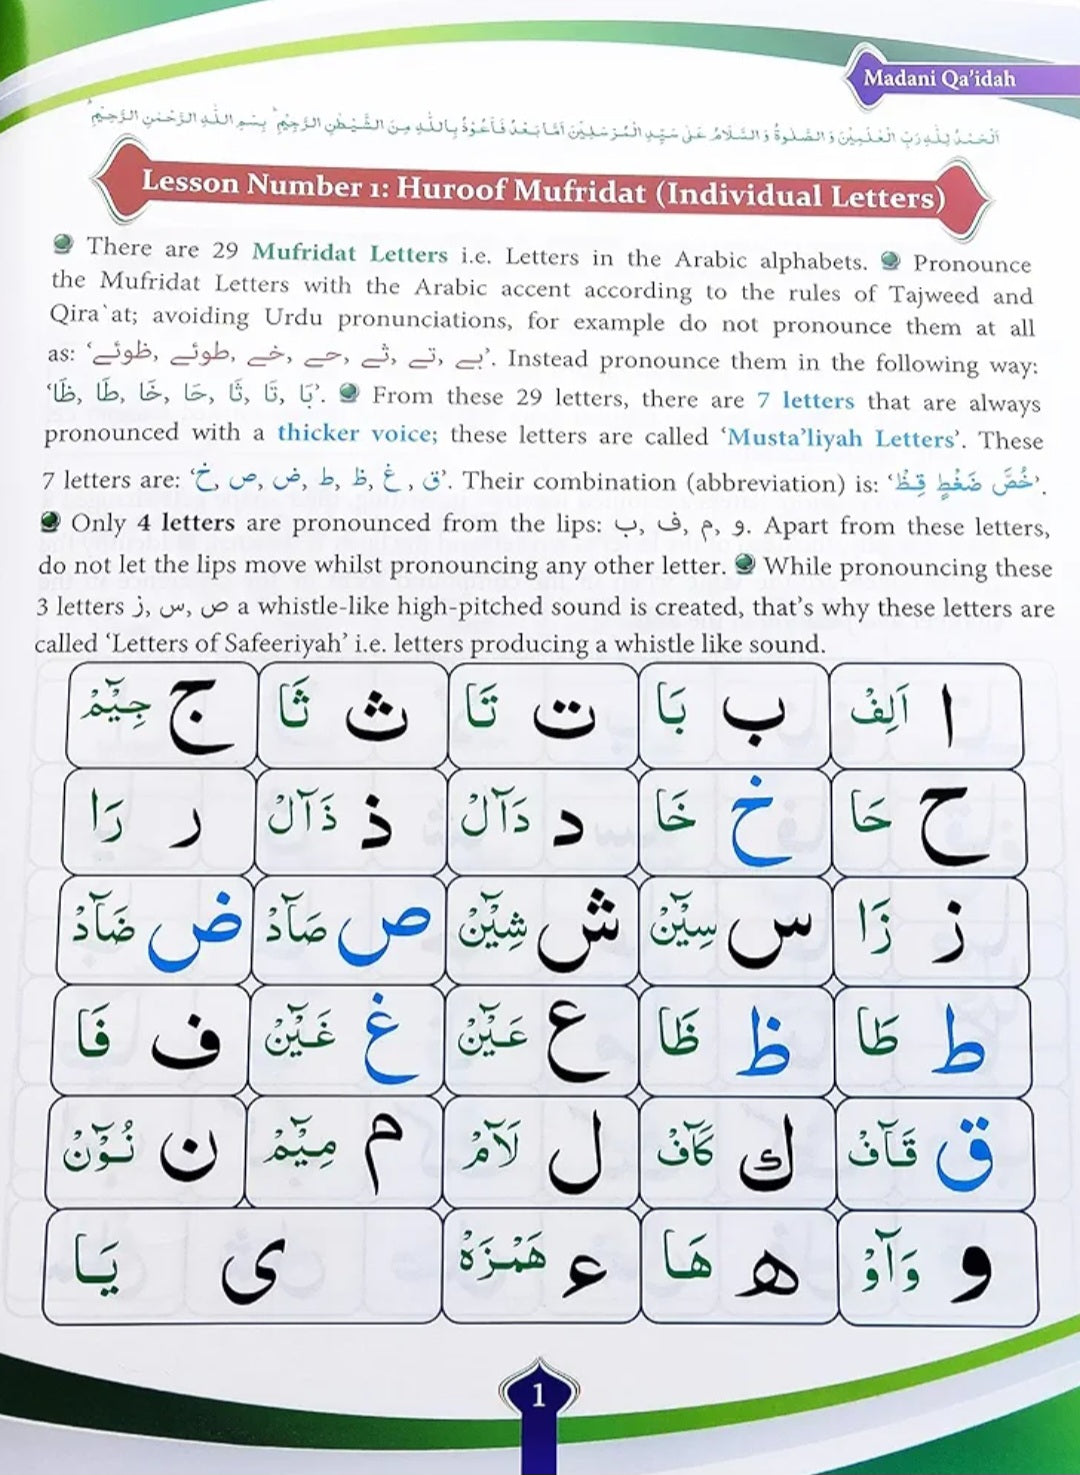 Madani Qa'idah
اَلْحَمْدُ لِلّٰهِ رَبِّ الْعٰلَمِيْنَ وَ الصَّلٰوةُ وَ السَّلَامُ عَلٰى سَيِّدِ الْمُرْسَلِيْنَ اَمَّا بَعْدُ فَاَعُوْذُ بِاللّٰهِ مِنَ الشَّيْطٰنِ الرَّجِيْمِ ؕ بِسْمِ اللّٰهِ الرَّحْمٰنِ الرَّحِيْمِ ؕ
Lesson Number 1: Huroof Mufridat (Individual Letters)
There are 29 Mufridat Letters i.e. Letters in the Arabic alphabets. Pronounce
the Mufridat Letters with the Arabic accent according to the rules of Tajweed and
Qira`at; avoiding Urdu pronunciations, for example do not pronounce them at all
as: ‘بے, تے, ثے, حے, خے, طوئے, ظوئے’. Instead pronounce them in the following way:
‘بَا, تَا, ثَا, حَا, خَا, طَا, ظَا’. From these 29 letters, there are 7 letters that are always
pronounced with a thicker voice; these letters are called ‘Musta’liyah Letters’. These
7 letters are: ‘خ, ص, ض, ط, ظ, غ, ق’. Their combination (abbreviation) is: ‘خُصَّ ضَغْطٍ قِظْ’.
Only 4 letters are pronounced from the lips: ب, ف, م, و. Apart from these letters,
do not let the lips move whilst pronouncing any other letter. While pronouncing these
3 letters ز, س, ص a whistle-like high-pitched sound is created, that’s why these letters are
called ‘Letters of Safeeriyah’ i.e. letters producing a whistle like sound.
ا اَلِفْ ب بَا ت تَا ث ثَا ج جِيْٓمْ
ح حَا خ خَا د دَآلْ ذ ذَآلْ ر رَا
ز زَا س سِيْٓنْ ش شِيْٓنْ ص صَآدْ ض ضَآدْ
ط طَا ظ ظَا ع عَيْٓنْ غ غَيْٓنْ ف فَا
ق قَآفْ ك كَآفْ ل لَآمْ م مِيْٓمْ ن نُوْٓنْ
و وَآوْ ھ ھَا ء ھَمْزَهْ ى يَا
1